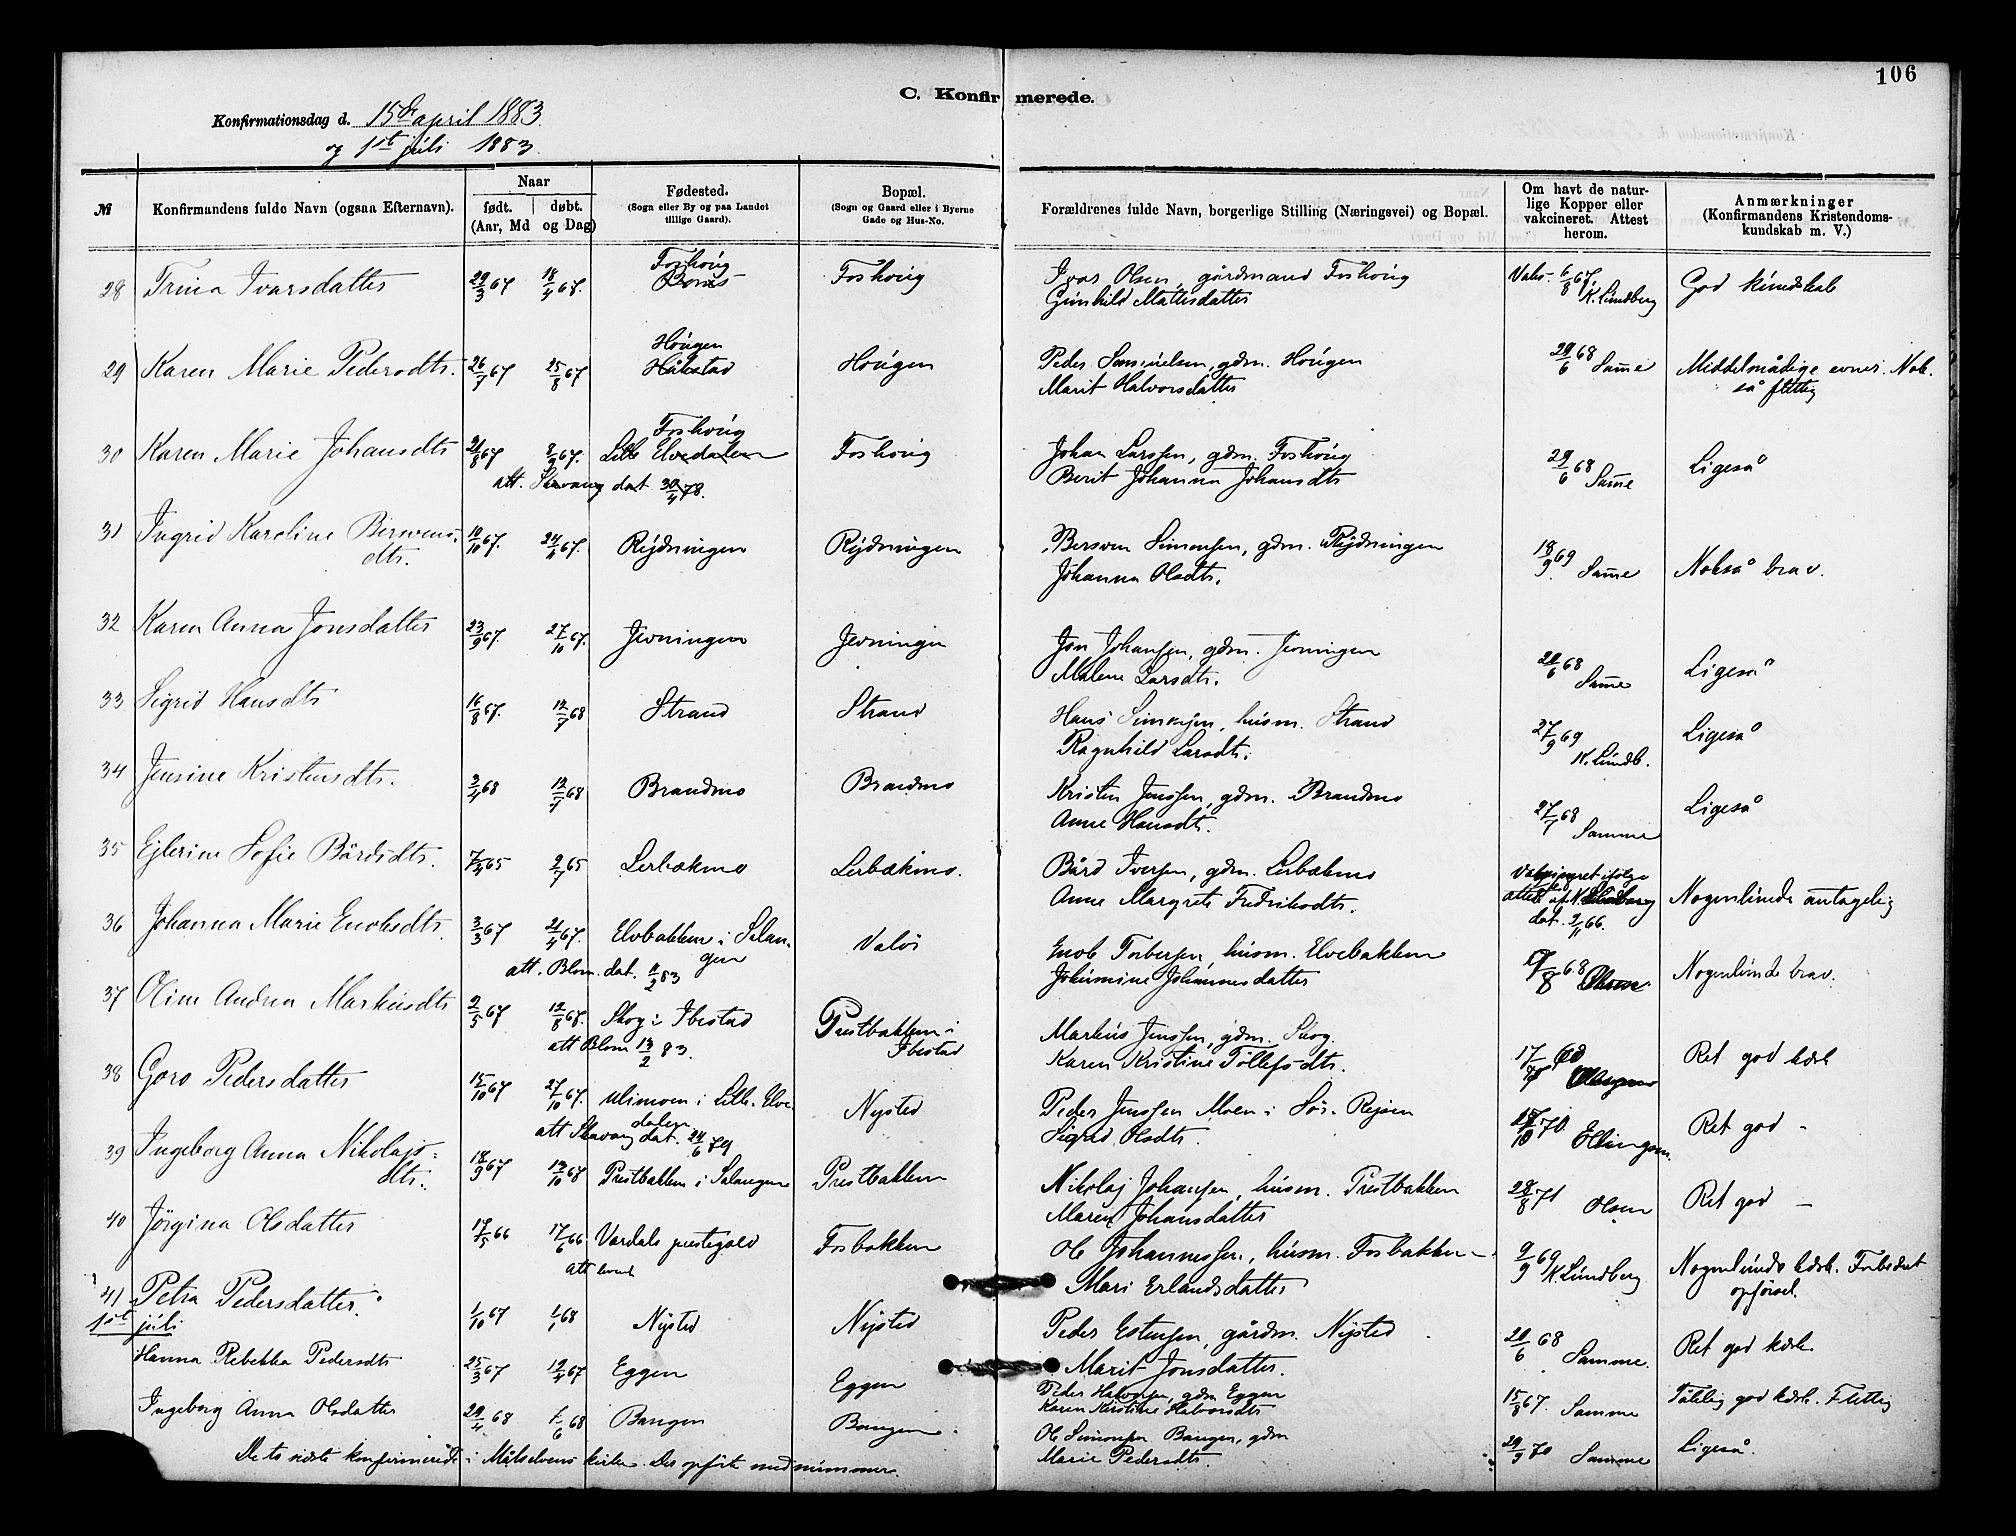 106
C. Konfirmerede.
Konfirmationsdag d. 15de april 1883
og 1ste juli 1883.
№
Konfirmandens fulde Navn (ogsaa Efternavn).
Naar
født. døbt.
(Aar, Md og Dag)
Fødested.
(Sogn eller By og paa Landet
tillige Gaard).
Bopæl.
(Sogn og Gaard eller i Byerne
Gade og Hus-No.
Forældrenes fulde Navn, borgerlige Stilling (Næringsvei) og Bopæl.
Om havt de natur-
lige Kopper eller
vakcineret. Attest
herom.
Anmærkninger
(Konfirmandens Kristendoms-
kundskab m. V.)
28 Trina Ivarsdatter 29/3 67 18/4 67. Foshoug Foshoug Ivar Olsen, gårdmand Foshoug 6/8 67, God kundskab
Gunhild Mattesdatter K. Lundberg
Hougen
29 Karen Marie Pedersdtr. 26/7 67 25/8 67 Håkstad Hougen Peder Samuelsen, gdm. Hougen 20/6 68 Samme Middelmådige evner. Nok
Marit Halvorsdatter så flittig
Foshoug
30 Karen Marie Johansdtr 21/8 67 8/9 67. Lille Elvedalen Foshoug Johan Larssen, gdm. Foshoug 29/6 68 Samme Ligeså
att. Stavang dat 30/4 78. Berit Johanna Johansdtr
31 Ingrid Karoline Bersvens- 10/10 67. 24/11 67. Rydningen Rydningen Bersven Simonsen, gdm. Rydningen 18/9 69 Samme Nokså brav.
dtr. Johanna Olsdtr.
32 Karen Anna Jonsdatter 23/9 67. 27/10 67. Jevningen Jevningen Jon Johansen, gdm. Jevningen 20/6 68 Samme Ligeså
Malene Larsdtr.
33 Sigrid Hansdtr 16/8 67. 12/7 68 Strand Strand Hans Simonsen, husm. Strand 27/9 69 Ligeså
Ragnhild Larsdtr. K. Lundb.
34 Jensine Kristensdtr. 3/4 68 12/7 68 Brandmo Brandmo Kristen Jenssen, gdm. Brandmo 27/7 68 Samme Ligeså
Anne Hansdtr.
35 Ejlerine Sofie Bårdsdtr. 7/4 65 2/7 65 Lerbækmo Lerbækmo. Bård Iversen, gdm. Lerbækmo Vakcineret ifølge Nogenlunde antagelig
Anne Margrete Fredriksdtr. attest af K. Lundberg
dat. 2/11 66.
36 Johanna Marie Enoksdtr. 3/3 67 21/4 67. Elvebakken i Salan- Valøi Enok Torbersen, husm. Elvebakken 68 Nogenlunde brav.
gen
att. Blom. dat. 11/2 83 Johannesdatter
37 Oline Andrea Markusdtr 2/5 67 12/8 67. Skog i Ibestad Prestbakken i Markus Jenssen, gdm. Skog. Ret god kdsk
Ibestad
att Blom 13/2 83. Karen Kristine Tollefsdtr.
38 Goro Pedersdatter 15/10 67 27/10 67. Ulimoen i Lille. Elve- Nysted Peder Jenssen Moen i Sør-Rejsen 70. Ellingsen Ret god -
dalen
att Stavang dat. 24/6 79 Sigrid Olsdtr.
39 Ingeborg Anna Nikolajs- 18/9 67 13/10 67 Prestbakken i Salangen Prestbakken Nikolaj Johansen, husm. Prestbakken 28/8 71 Olsen Ret god -
dtr. Maren Johansdatter
40 Jørgina Olsdatter 17/5 66 17/6 66 Vardals prestegjeld Fosbakken Ole Johannessen, husm. Fosbakken 9/9 69 Nogenlunde kdsk. Forbedret
Mari Erlandsdatter K. Lundberg opførsel.
41 Petra Pedersdatter. 1/10 67 1/1 68 Nysted Nysted Peder Estensen, gårdm. Nysted 20/6 68 Samme. Ret god kdsk.
1ste juli Marit Jonsdatter.
Hanna Rebekka Pedersdtr 25/3 67 19/4 67 Eggen Eggen Peder Halvorsen, gdm Eggen 15/8 67. Samme Tålelig god kdsk. Flittig
Karen Kirstine Halvorsdtr
Ingeborg Anna Olsdatter 20/4 68 1/6 68 Bangen Bangen Ole Simonsen Bangen, gdm 29/9 70 Samme Ligeså.
Marie Pedersdtr.
De to sidste konfirmerede i Målselvens kirke. Der opførte med nummer.